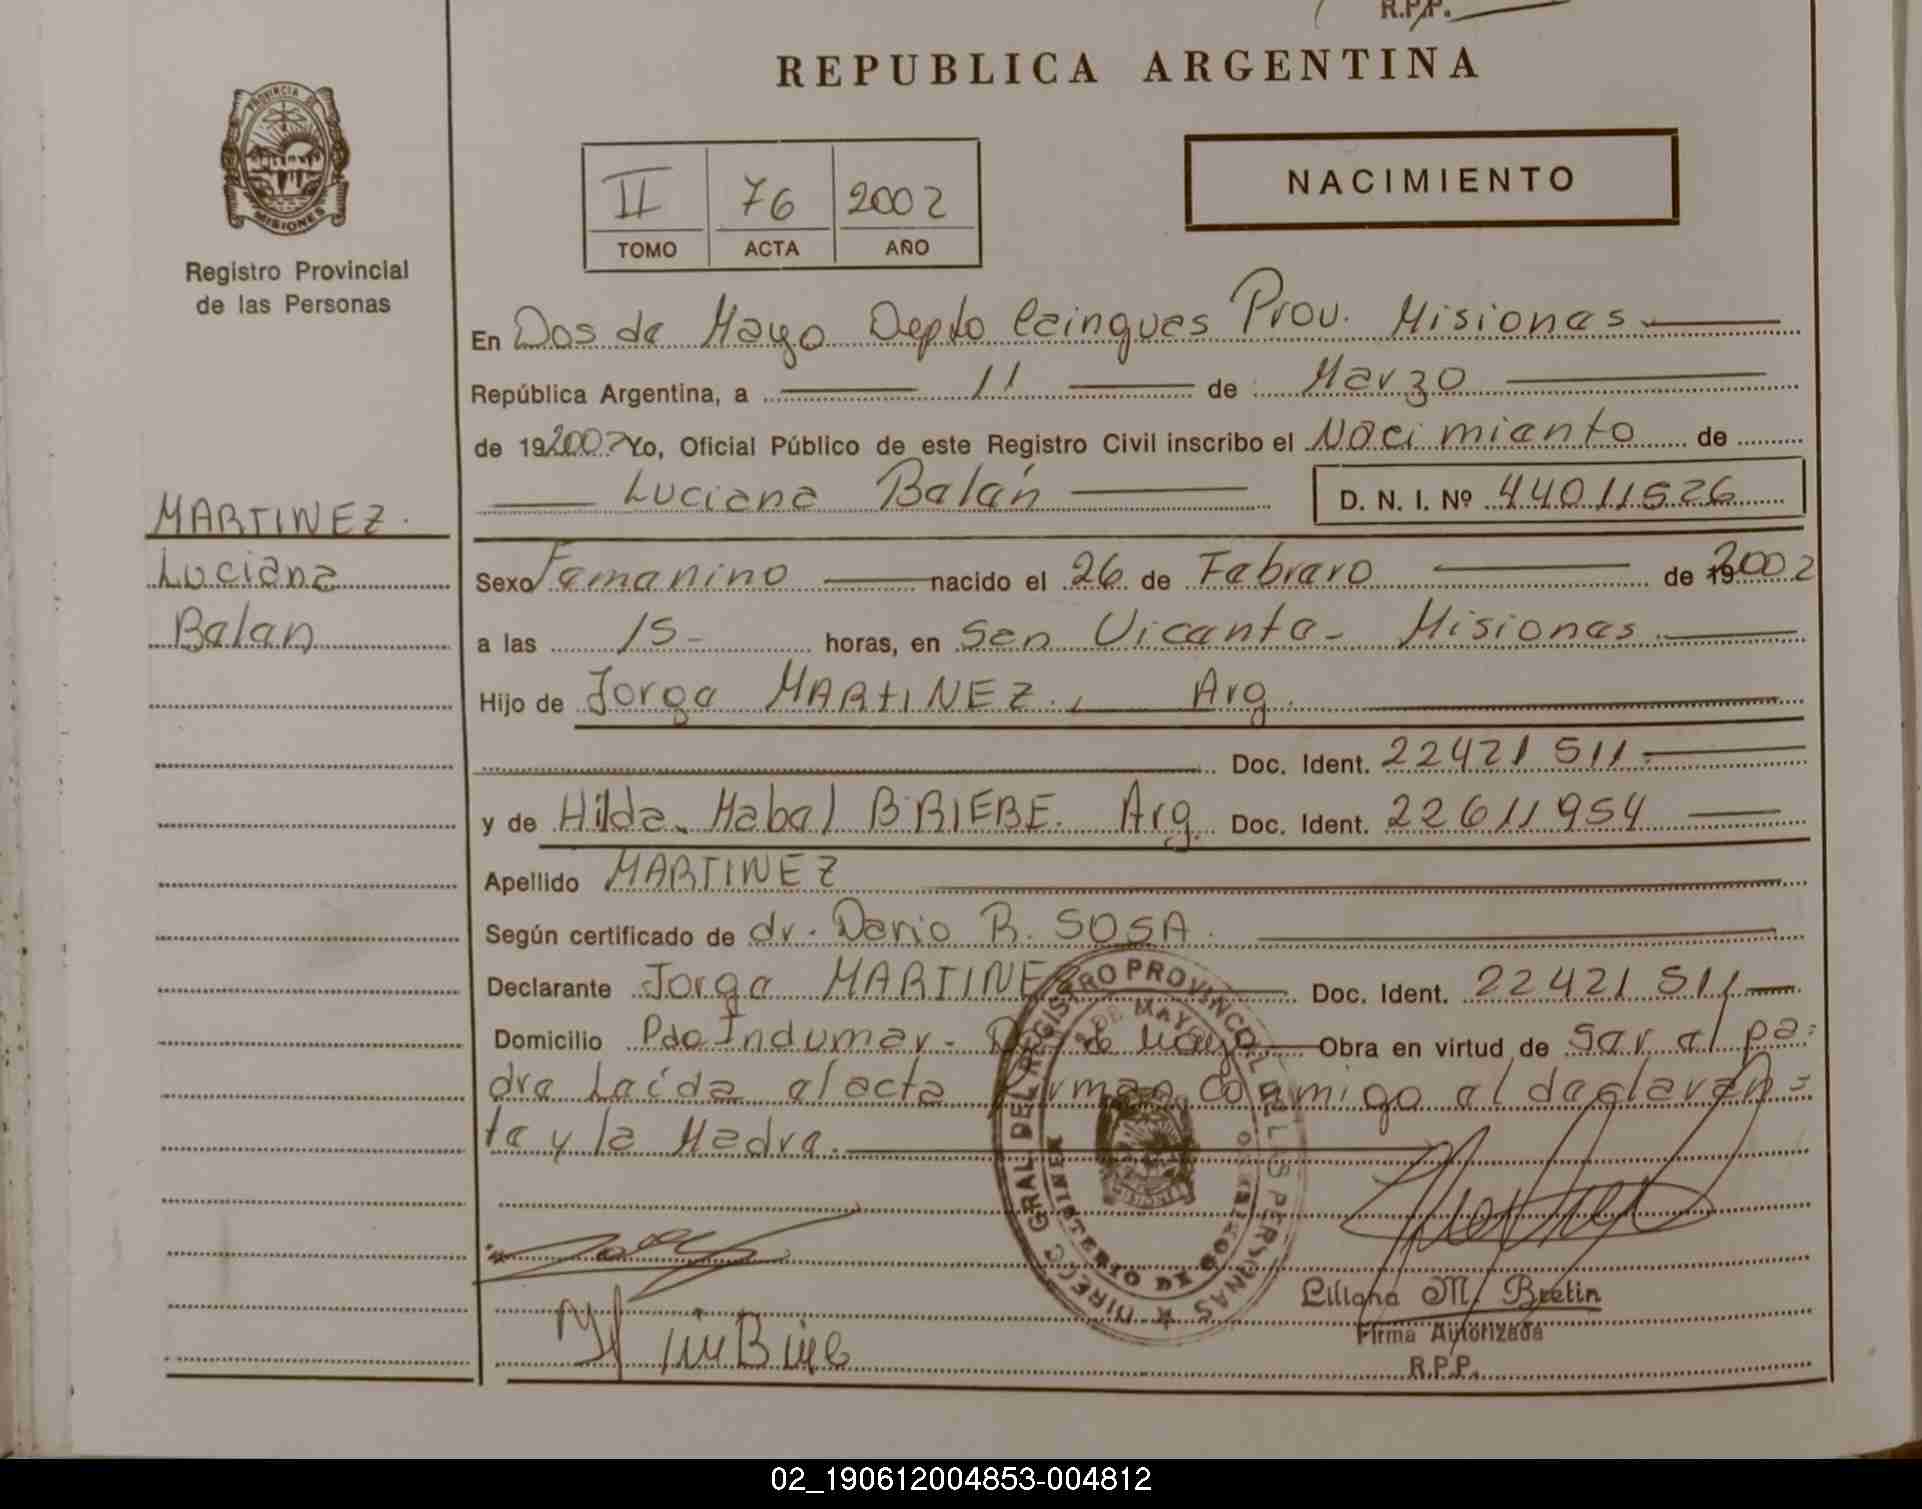 R.P.P.
REPUBLICA ARGENTINA
PROVINCIA DE
MISIONES
Registro Provincial
de las Personas
II 76 2002
TOMO ACTA AÑO
NACIMIENTO
En Dos de Mayo Depto Cainguas Prov. Misiones
República Argentina, a 11 de Marzo
de 192002 Yo, Oficial Público de este Registro Civil inscribo el Nacimiento de
Luciana Balán D. N. I. Nº 44011526
MARTINEZ.
Luciana
Balan
Sexo Femenino nacido el 26 de Febrero de 19 2002
a las 15- horas, en San Vicente - Misiones.
Hijo de Jorge MARTINEZ., Arg.
Doc. Ident. 22421511
y de Hilda Mabel BRIEBE. Arg. Doc. Ident. 22611954
Apellido MARTINEZ
Según certificado de dr. Dario R. SOSA.
Declarante Jorge MARTINEZ Doc. Ident. 22421511
Domicilio Pdo Indumar - Dos de Mayo. Obra en virtud de ser el pa=
dre Leída el acta firman conmigo el declaran=
te y la Madre.
DIRECC GRAL DEL REGISTRO PROVINCIAL DE LAS PERSONAS
DE MAYO
MINISTERIO DE GOBIERNO
MISIONES
Liliana M. Bretin
Firma Autorizada
R.P.P.
02_190612004853-004812